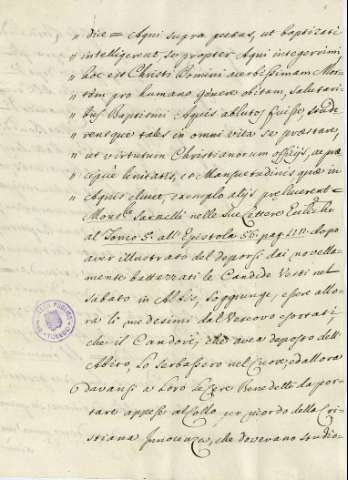 " dice = Agni supra pectus, ut baptizati
" intelligerent, se propter Agni integerrimi,
" hoc est Christi Domini acerbissimam Mor-
" tem pro humano genere obitam, salutari-
" bus Baptismi Aquis ablutos fuisse, stude-
" rentque tales in omni vita se præstare,
" ut virtutum Christianorum officijs, ac præ-
" cipuè lenitatis, et Mansuetudinis quæ in
" Agnis elucet, exemplo alijs prælucerent =
Monsr. Sarnelli nelle sue Lettere Eccles.che
al Tomo 5.° all' Epistola 56. pag. 111. dopo
aver illustrato del deporsi dai novella-
mente battezzati le Candide Vesti nel
Sabato in Albis, soggiunge, essere allo-
ra li medesimi dal Vescovo esortati,
che il Candore, che avea deposto dell'
Abito, lo serbassero nel Cuore, ed allora
davansi a Loro le Cere Benedetti da por-
tare appesi al Collo per ricordo della Cri-
stiana Innocenza, che dovevano studio-